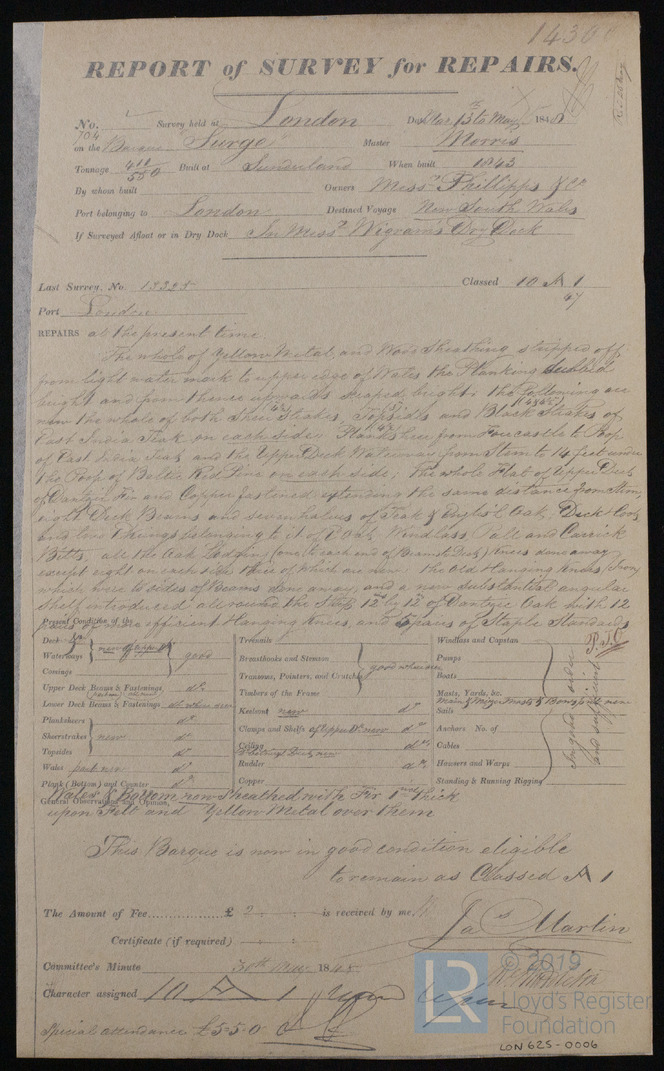 1430
REPORT of SURVEY for REPAIRS.
No. 704 Survey held at London Date Mar 13 to May 1848
on the Barque "Surge" Master Morris
Tonnage 411/550 Built at Sunderland When built 1843
By whom built Owners Messrs Phillipps & Co
Port belonging to London Destined Voyage New South Wales
If Surveyed Afloat or in Dry Dock In Messrs Wigrams Dry Dock
Last Survey, No. 13325 Classed 10 A 1
47
Port London
REPAIRS at the present time
The whole of Yellow Metal, and Wood Sheathing, stripped off
from light water mark to upper edge of Wales the Planking dubbed
bright and from thence upwards scraped bright: the following are
new the whole of both Sheer Strakes, Topsides and Black Strakes of
East India Teak on each side: Plansheer from Forecastle to Poop
of East India Teak and the Upper Deck Waterway from Stem to 14 feet under
the Poop of Baltic Red Pine on each side; The whole Flat of Upper Deck
of Dantzic Fir and Copper fastened extending the same distance from Stem,
eight Deck Beams and seven halves of Teak & English Oak, Deck
and two things belonging to it of Oak, Windlass Pall and Carrick
Bitts, all the Oak Lodging (one at each end of Beams to Deck) Knees done away
except eight on each side three of which are new: the Old Hanging Knees (Iron)
which were to sides of Beams done away, and a new substantial angular
Shelf introduced all round the Ship 12 by 12 of Dantzic Oak with 12
pairs of efficient Hanging Knees, and 4 pairs of Staple Standards
P.T.O
Present Condition of the
Deck new of upper dk
Waterways good
Comings
Upper Deck Beams & Fastenings do
Lower Deck Beams & Fastenings do where seen
Planksheers do
Sheerstrakes new do
Topsides do
Wales part new do
Plank (Bottom) and Counter do
Treenails
Breasthooks and Stemson
Transoms, Pointers, and Crutches good where seen
Timbers of the Frame
Keelson new do
Clamps and Shelfs of Upper dk new do
Ceiling do
Rudder do
Copper
Windlass and Capstan
Pumps
Boats
Masts, Yards, &c.
Main & Mizen Masts & Bowsprit new
Sails
Anchors No. of
Cables
Hawsers and Warps
Standing & Running Rigging
in good order
and sufficient
General Observations and Opinion,
Wales & Bottom now Sheathed with Fir 1 inch thick
upon Felt and Yellow Metal over them
This Barque is now in good condition eligible
to remain as Classed A 1
The Amount of Fee £ 2 is received by me,
Jas Martin
Certificate (if required)
Committee's Minute 30th May 1848
Character assigned 10 A 1
Special attendance £5-5-0
© 2019
LR
Lloyd's Register
Foundation
LON 625-0006